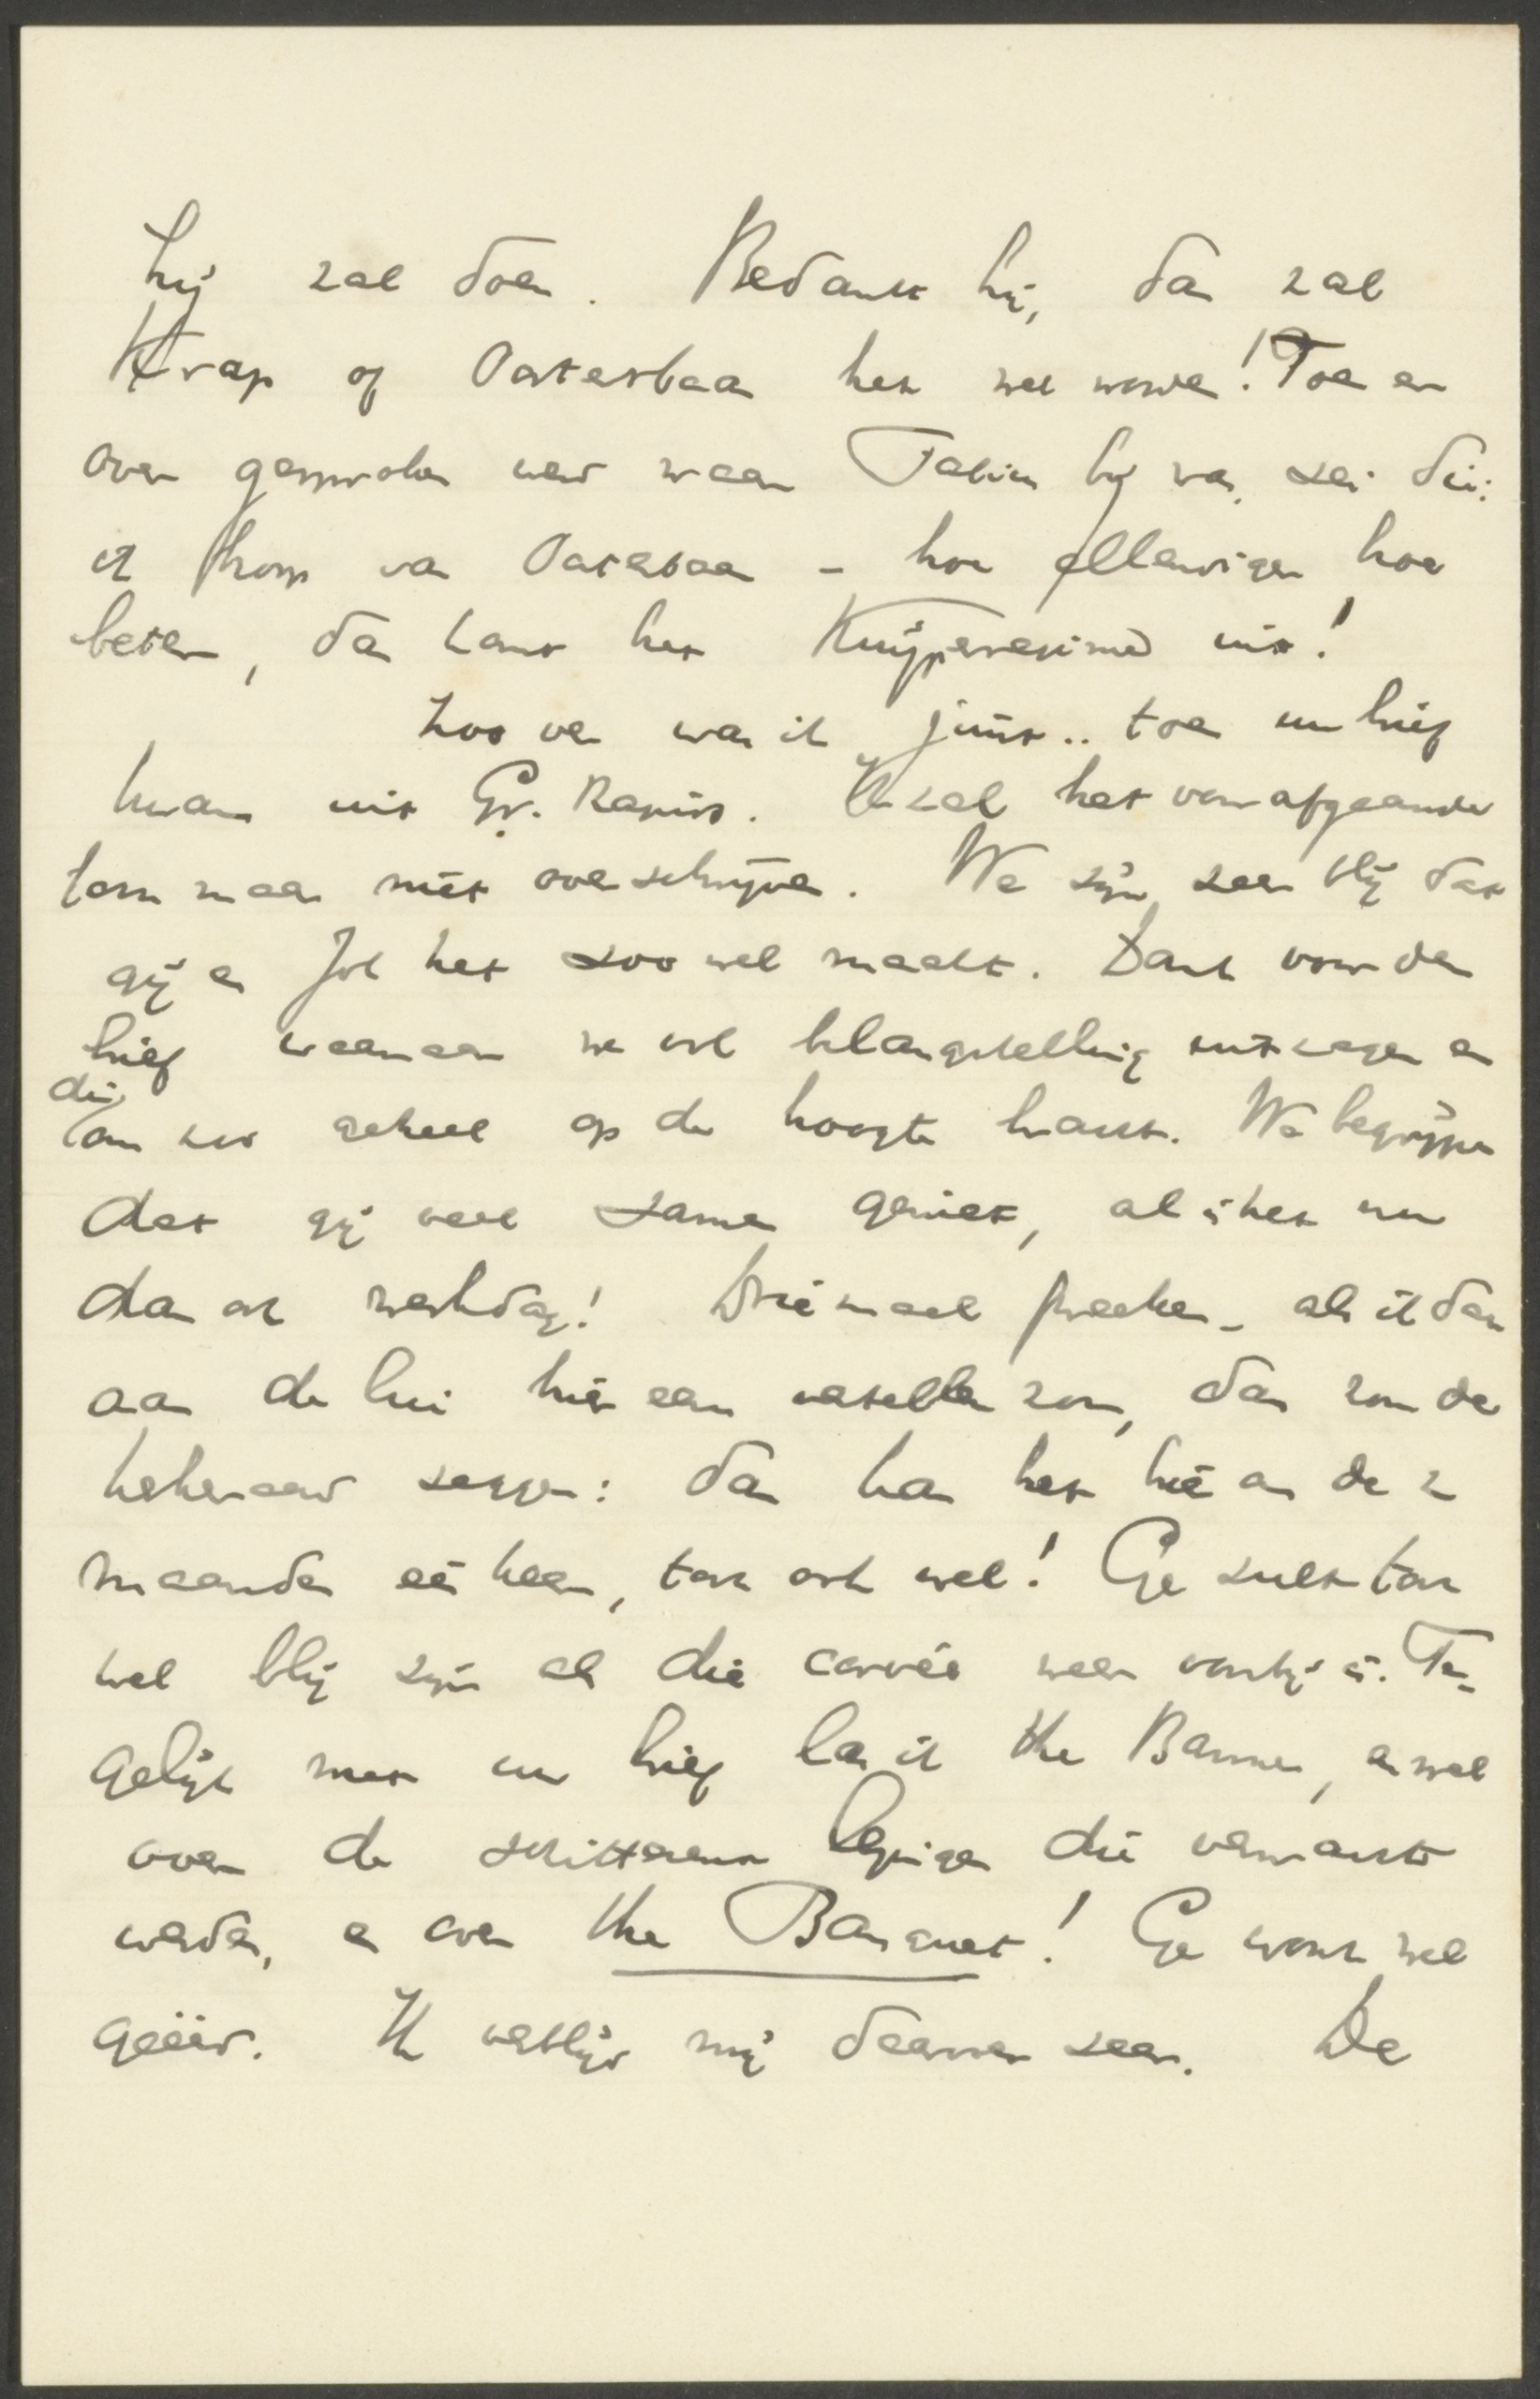 hij zal doen. Bedankt hij, dan zal
Krap of Oosterbaan het wel worden! Toen er
over gesproken werd waar Fabius bij was, zei die:
ik stem van Oosterbaan – hoe ellendiger hoe
beter, dan komt het Kuyperregime uit!
Zoo ver was ik juist.. toen uw brief
kwam uit Gr. Rapids. Ik zal het voorafgaande
toen maar niet overschrijven. We zijn zeer blij dat
gij en Jol het zoo wel maakt. Dank voor den
brief waarnaar we met belangstelling uitzagen en
die
ons zoo geheel op de hoogte bracht. We begrijpen
dat gij veel samen geniet, al is het nu
dan ook werkdag! Driemaal preeken – als ik dan
aan de lui hier eens vertellen zou, dan zou de
kerkeraad zeggen: dan kan het hier om de 2
maanden één keer, toch ook wel! Ge zult toch
wel blij zijn als die corvée weer voorbij is. Te-
gelijk met uw brief las ik the Banner, en wel
over de schitterende lezingen die verwacht
werden, en over the Banquet! Ge wordt wel
geëerd. Ik verblijd mij daarover zeer. De